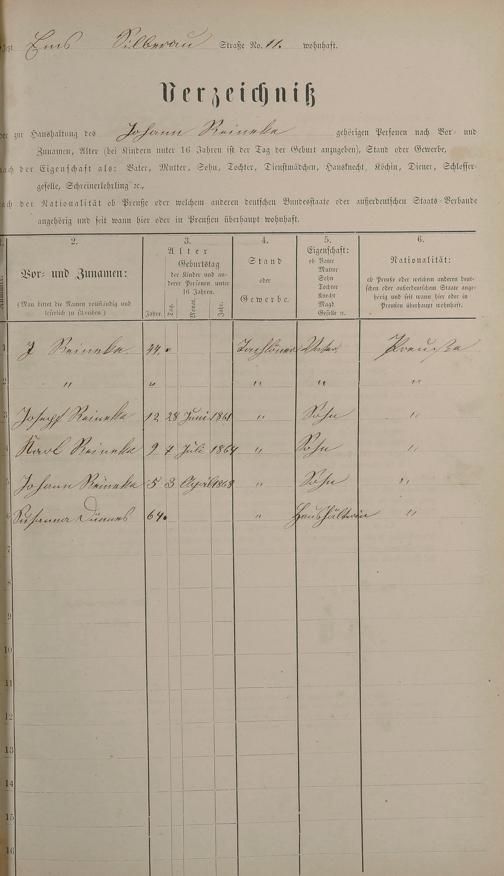 Ems Silberau Straße No. 11. wohnhaft.
Verzeichniß
der zur Haushaltung des Johann Reineke gehörigen Personen nach Vor- und
Zunamen, Alter (bei Kindern unter 16 Jahren ist der Tag der Geburt anzugeben), Stand oder Gewerbe,
nach der Eigenschaft als: Vater, Mutter, Sohn, Tochter, Dienstmädchen, Hausknecht, Köchin, Diener, Schlosser-
geselle, Schreinerlehrling ꝛc.,
nach der Nationalität ob Preuße oder welchem anderen deutschen Bundesstaate oder außerdeutschen Staats-Verbande
angehörig und seit wann hier oder in Preußen überhaupt wohnhaft.
1. 2. 3. 4. 5. 6.
Nummer.
Vor- und Zunamen:
(Man bittet die Namen vollständig und
leserlich zu schreiben.)
Alter
Geburtstag
der Kinder und an-
derer Personen unter
16 Jahren.
Jahre. Tag. Monat. Jahr.
Stand
oder
Gewerbe.
Eigenschaft:
ob Vater
Mutter
Sohn
Tochter
Knecht
Magd
Geselle ꝛc.
Nationalität:
ob Preuße oder welchem anderen deut-
schen oder außerdeutschen Staate ange-
hörig und seit wann hier oder in
Preußen überhaupt wohnhaft.
1 J Reineke 44. Vater Preuße
2 " " " " "
3 Joseph Reineke 12 28 Juni 1861 " Sohn "
4 Karl Reineke 9 7 Juli 1864 " Sohn "
5 Johann Reineke 5 3 April 1868 " Sohn "
6 Susanna 64. " Haushälterin "
7
8
9
10
11
12
13
14
15
16